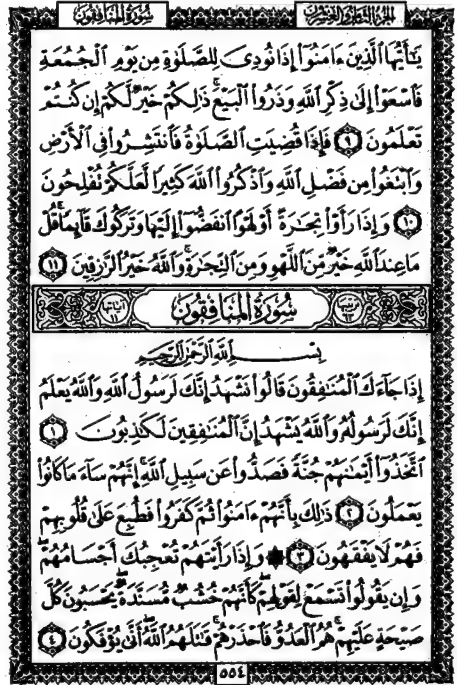 سُورَةُ المُنَافِقُون
الجُزْءُ الثَّامِنُ وَالعِشْرُونَ
يَٰٓأَيُّهَا ٱلَّذِينَ ءَامَنُوٓا۟ إِذَا نُودِىَ لِلصَّلَوٰةِ مِن يَوْمِ ٱلْجُمُعَةِ
فَٱسْعَوْا۟ إِلَىٰ ذِكْرِ ٱللَّهِ وَذَرُوا۟ ٱلْبَيْعَ ۚ ذَٰلِكُمْ خَيْرٌ لَّكُمْ إِن كُنتُمْ
تَعْلَمُونَ ٩ فَإِذَا قُضِيَتِ ٱلصَّلَوٰةُ فَٱنتَشِرُوا۟ فِى ٱلْأَرْضِ
وَٱبْتَغُوا۟ مِن فَضْلِ ٱللَّهِ وَٱذْكُرُوا۟ ٱللَّهَ كَثِيرًا لَّعَلَّكُمْ تُفْلِحُونَ
١٠ وَإِذَا رَأَوْا۟ تِجَٰرَةً أَوْ لَهْوًا ٱنفَضُّوٓا۟ إِلَيْهَا وَتَرَكُوكَ قَآئِمًا ۚ قُلْ
مَا عِندَ ٱللَّهِ خَيْرٌ مِّنَ ٱللَّهْوِ وَمِنَ ٱلتِّجَٰرَةِ ۚ وَٱللَّهُ خَيْرُ ٱلرَّٰزِقِينَ ١١
ترتيبها ٦٣ سُورَةُ المُنَافِقُون آياتها ١١
بِسْمِ ٱللَّهِ ٱلرَّحْمَٰنِ ٱلرَّحِيمِ
إِذَا جَآءَكَ ٱلْمُنَٰفِقُونَ قَالُوا۟ نَشْهَدُ إِنَّكَ لَرَسُولُ ٱللَّهِ وَٱللَّهُ يَعْلَمُ
إِنَّكَ لَرَسُولُهُۥ وَٱللَّهُ يَشْهَدُ إِنَّ ٱلْمُنَٰفِقِينَ لَكَٰذِبُونَ ١
ٱتَّخَذُوٓا۟ أَيْمَٰنَهُمْ جُنَّةً فَصَدُّوا۟ عَن سَبِيلِ ٱللَّهِ ۚ إِنَّهُمْ سَآءَ مَا كَانُوا۟
يَعْمَلُونَ ٢ ذَٰلِكَ بِأَنَّهُمْ ءَامَنُوا۟ ثُمَّ كَفَرُوا۟ فَطُبِعَ عَلَىٰ قُلُوبِهِمْ
فَهُمْ لَا يَفْقَهُونَ ٣ ۞ وَإِذَا رَأَيْتَهُمْ تُعْجِبُكَ أَجْسَامُهُمْ ۖ
وَإِن يَقُولُوا۟ تَسْمَعْ لِقَوْلِهِمْ ۖ كَأَنَّهُمْ خُشُبٌ مُّسَنَّدَةٌ ۖ يَحْسَبُونَ كُلَّ
صَيْحَةٍ عَلَيْهِمْ ۚ هُمُ ٱلْعَدُوُّ فَٱحْذَرْهُمْ ۚ قَٰتَلَهُمُ ٱللَّهُ ۖ أَنَّىٰ يُؤْفَكُونَ ٤
٥٥٤